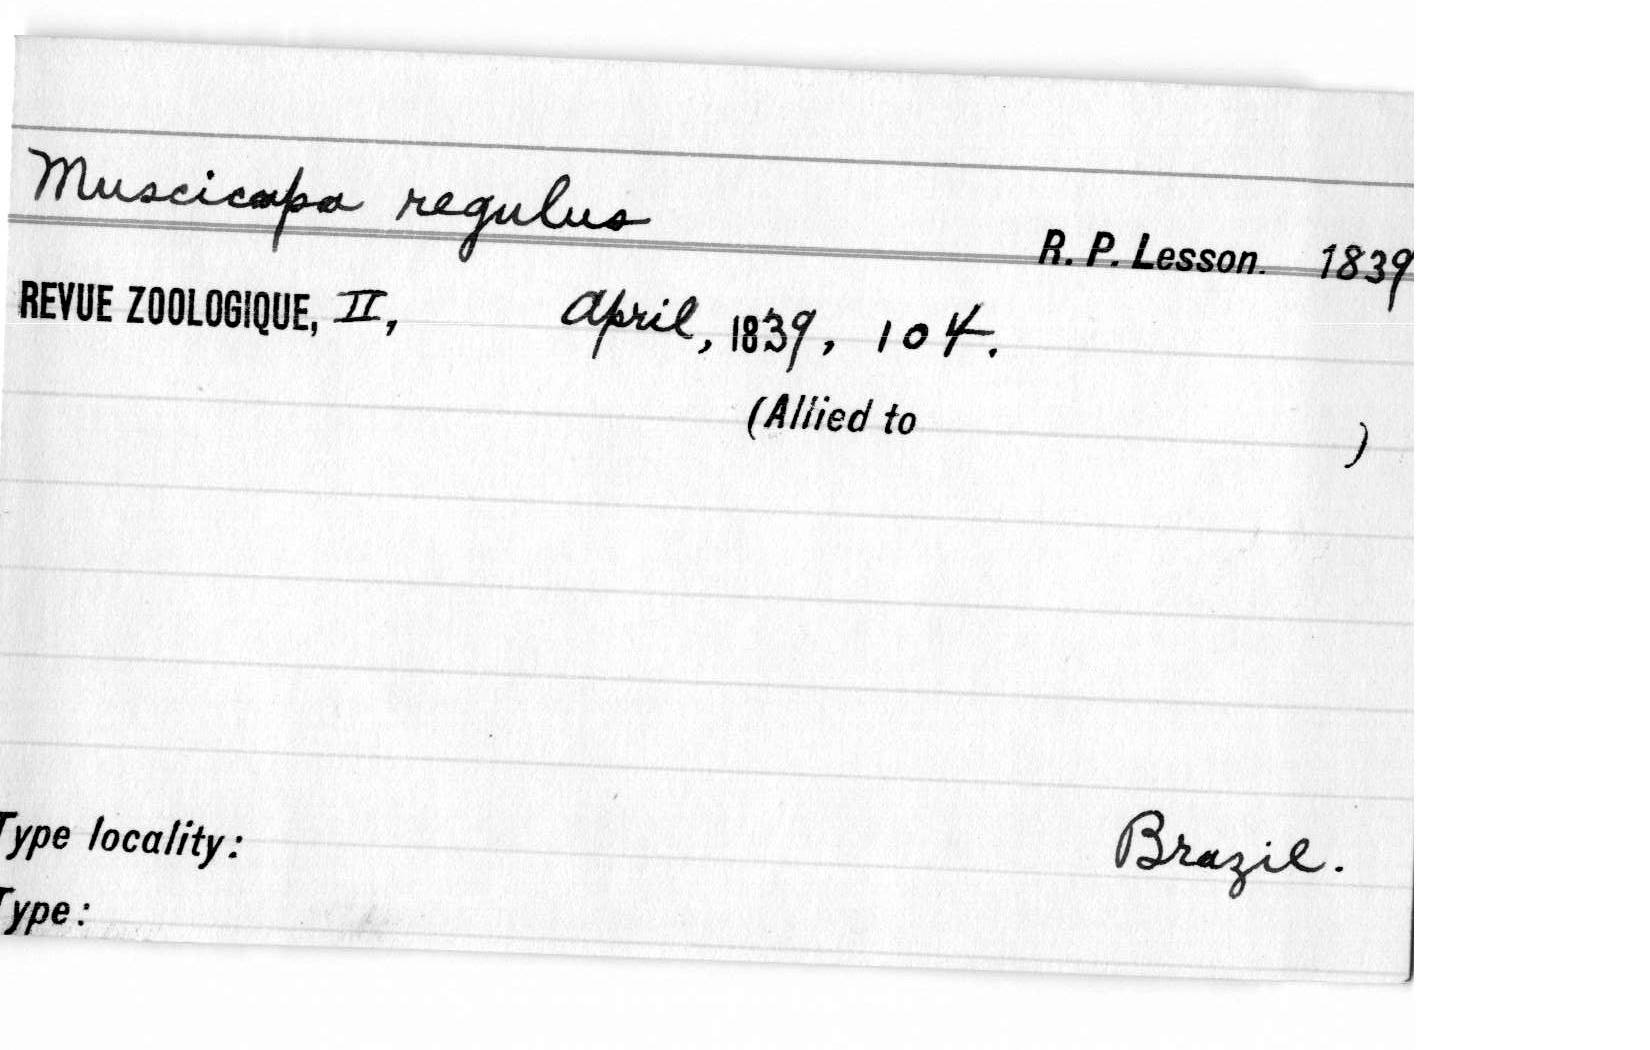 Muscicapa regulus
R. P. Lesson. 1839
REVUE ZOOLOGIQUE, II, April, 1839, 104.
(Allied to )
Type locality: Brazil.
Type: